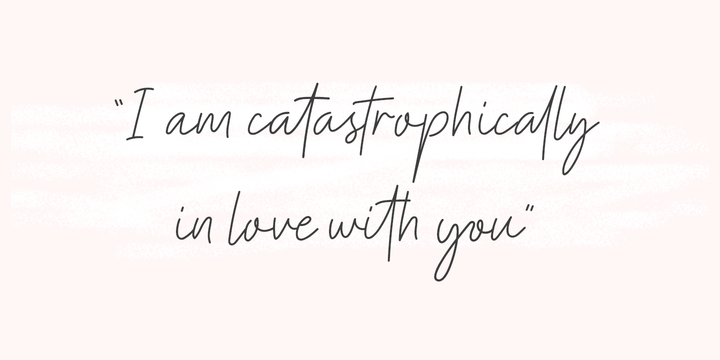 "I am catastrophically
in love with you"